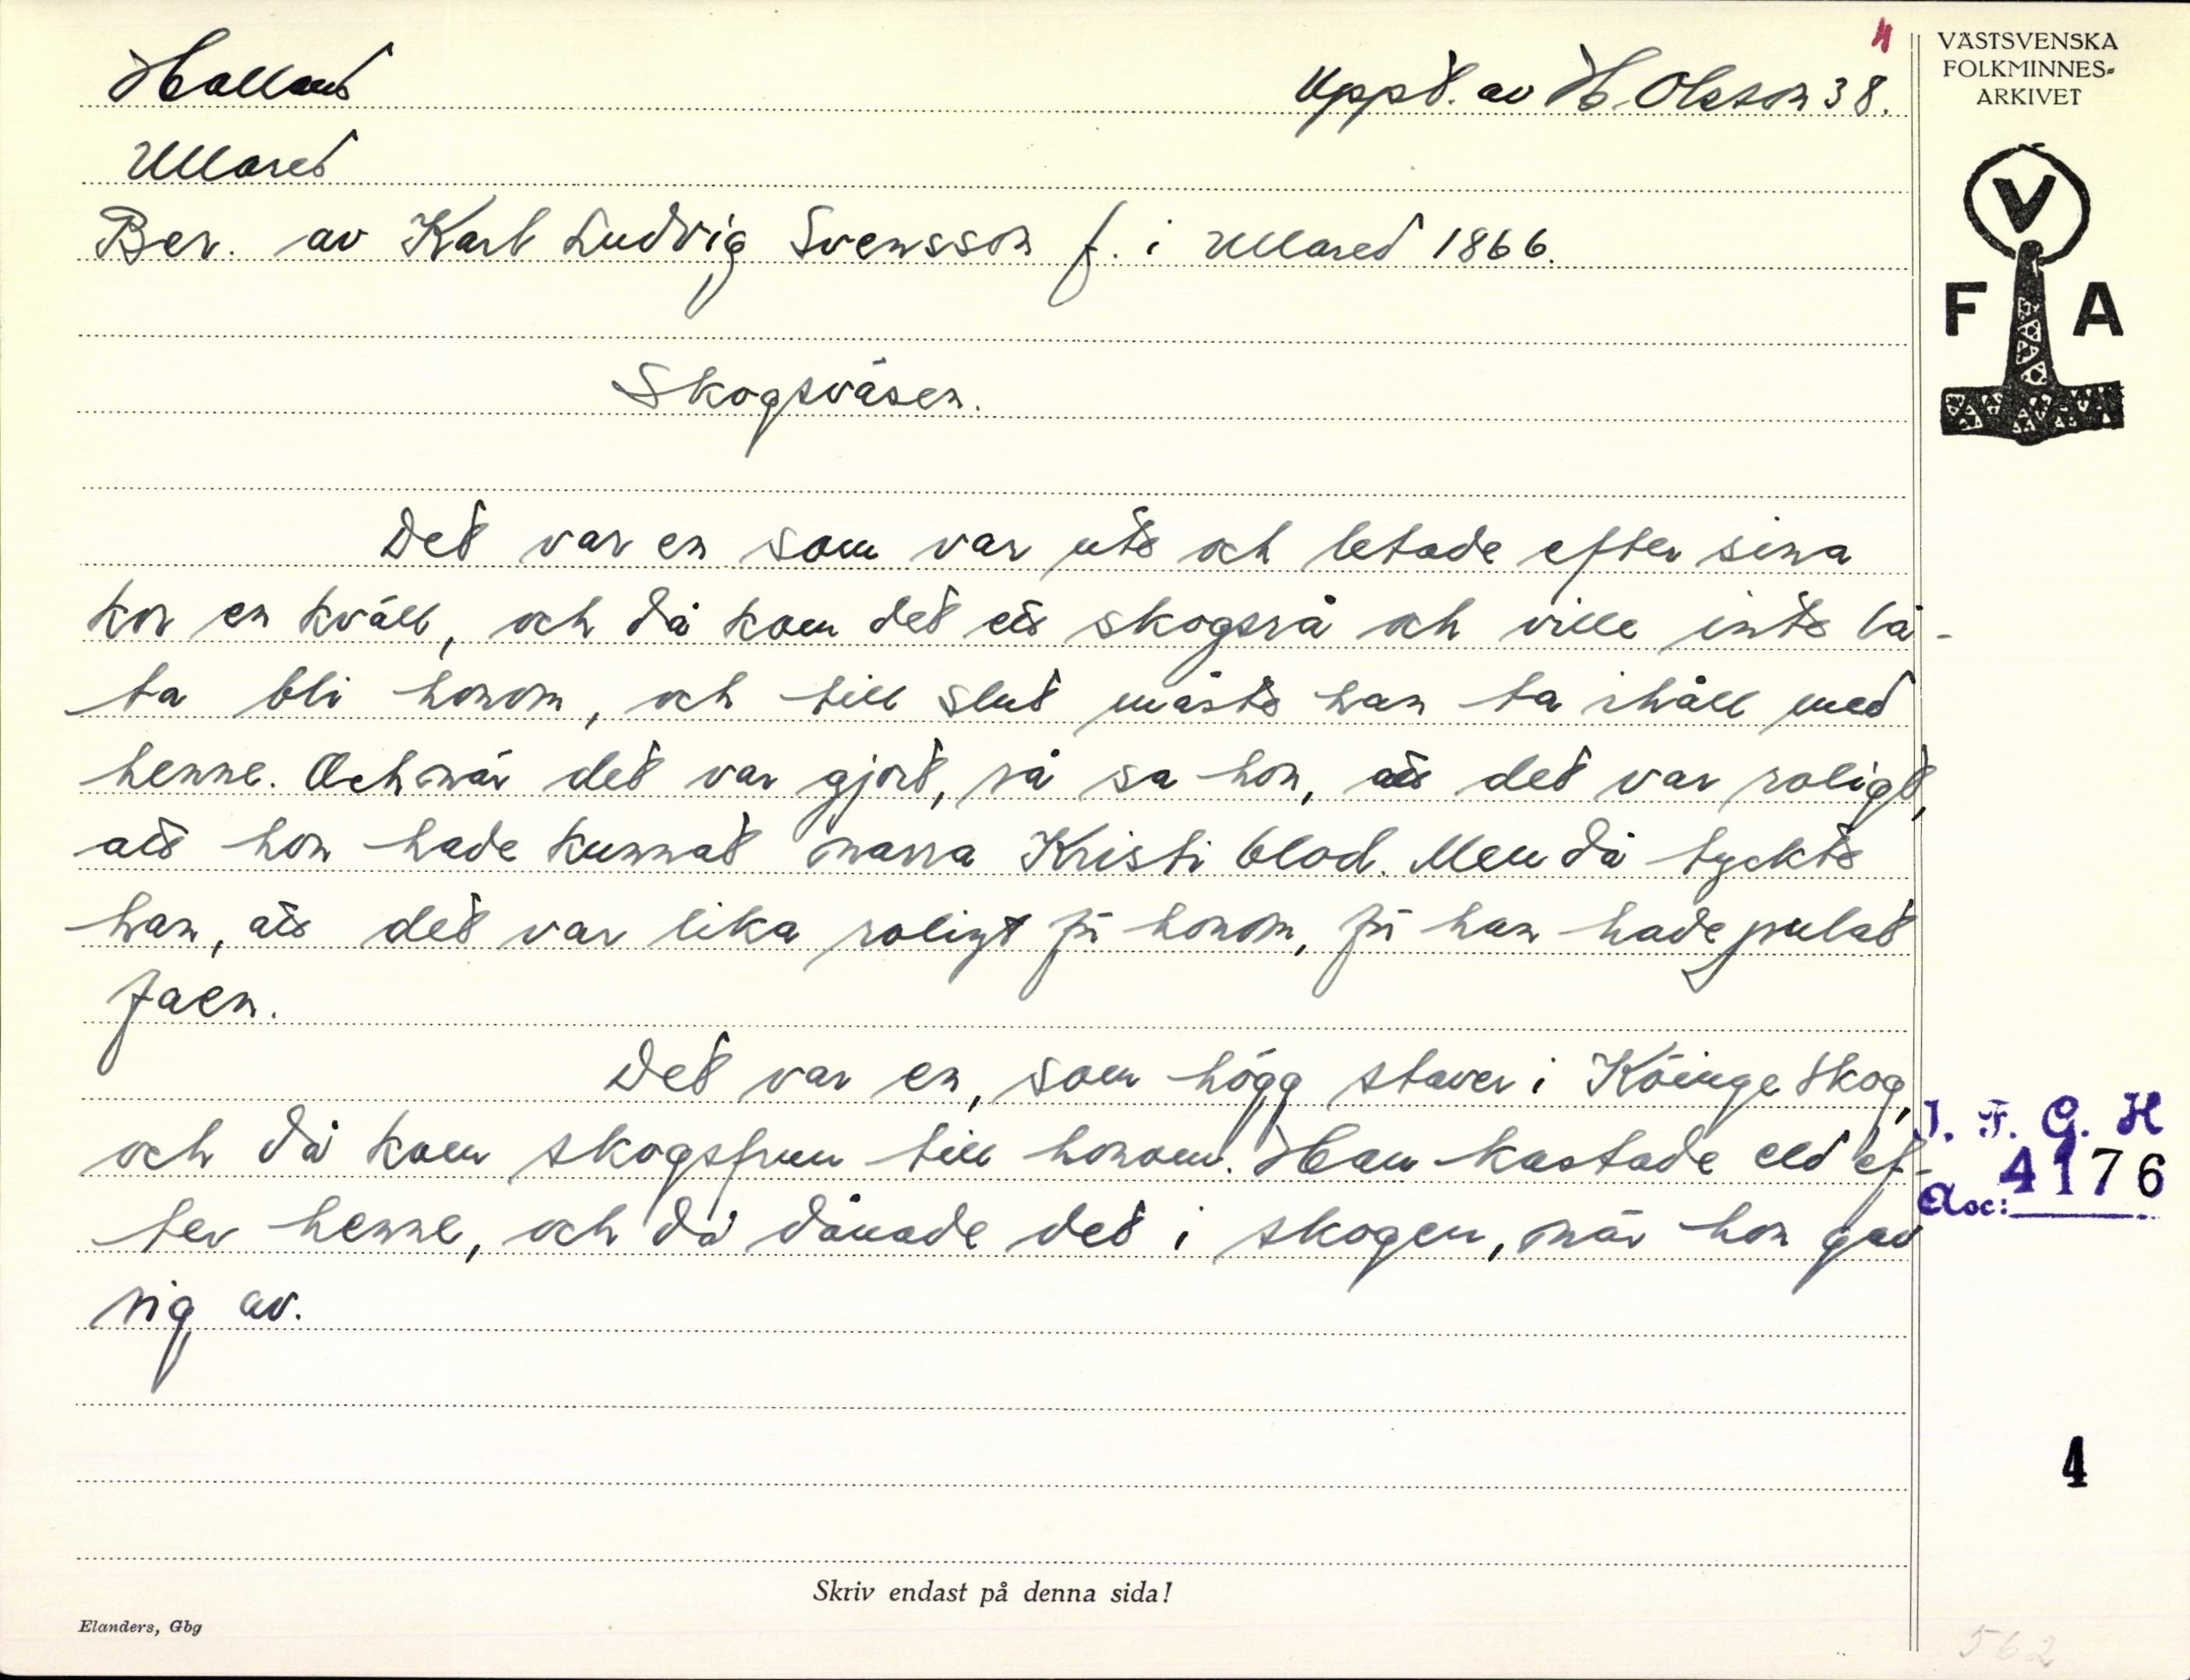 Halland
Uppt. av H. Olsson 38.
4
Ullared
Ber. av Karl Ludvig Svensson f. i Ullared 1866.
Skogsväsen.
Det var en som var ute och letade efter sina
kor en kväll, och då kom det ett skogsrå och ville inte lå-
ta bli honom, och till slut måste han ta ihåll med
henne. Och när det var gjort, så sa hon, att det var roligt,
att hon hade kunnat narra Kristi blod. Men då tyckte
han, att det var lika roligt för honom, för han hade pulat
faen.
Det var en, som högg staver i Köinge skog,
och då kom skogsfrun till honom. Han kastade eld ef-
ter henne, och då dånade det i skogen, när hon gav
sig av.
VÄSTSVENSKA
FOLKMINNES-
ARKIVET
V
F A
I. F. G. H
Acc: 4176
4
Skriv endast på denna sida!
Elanders, Gbg
562